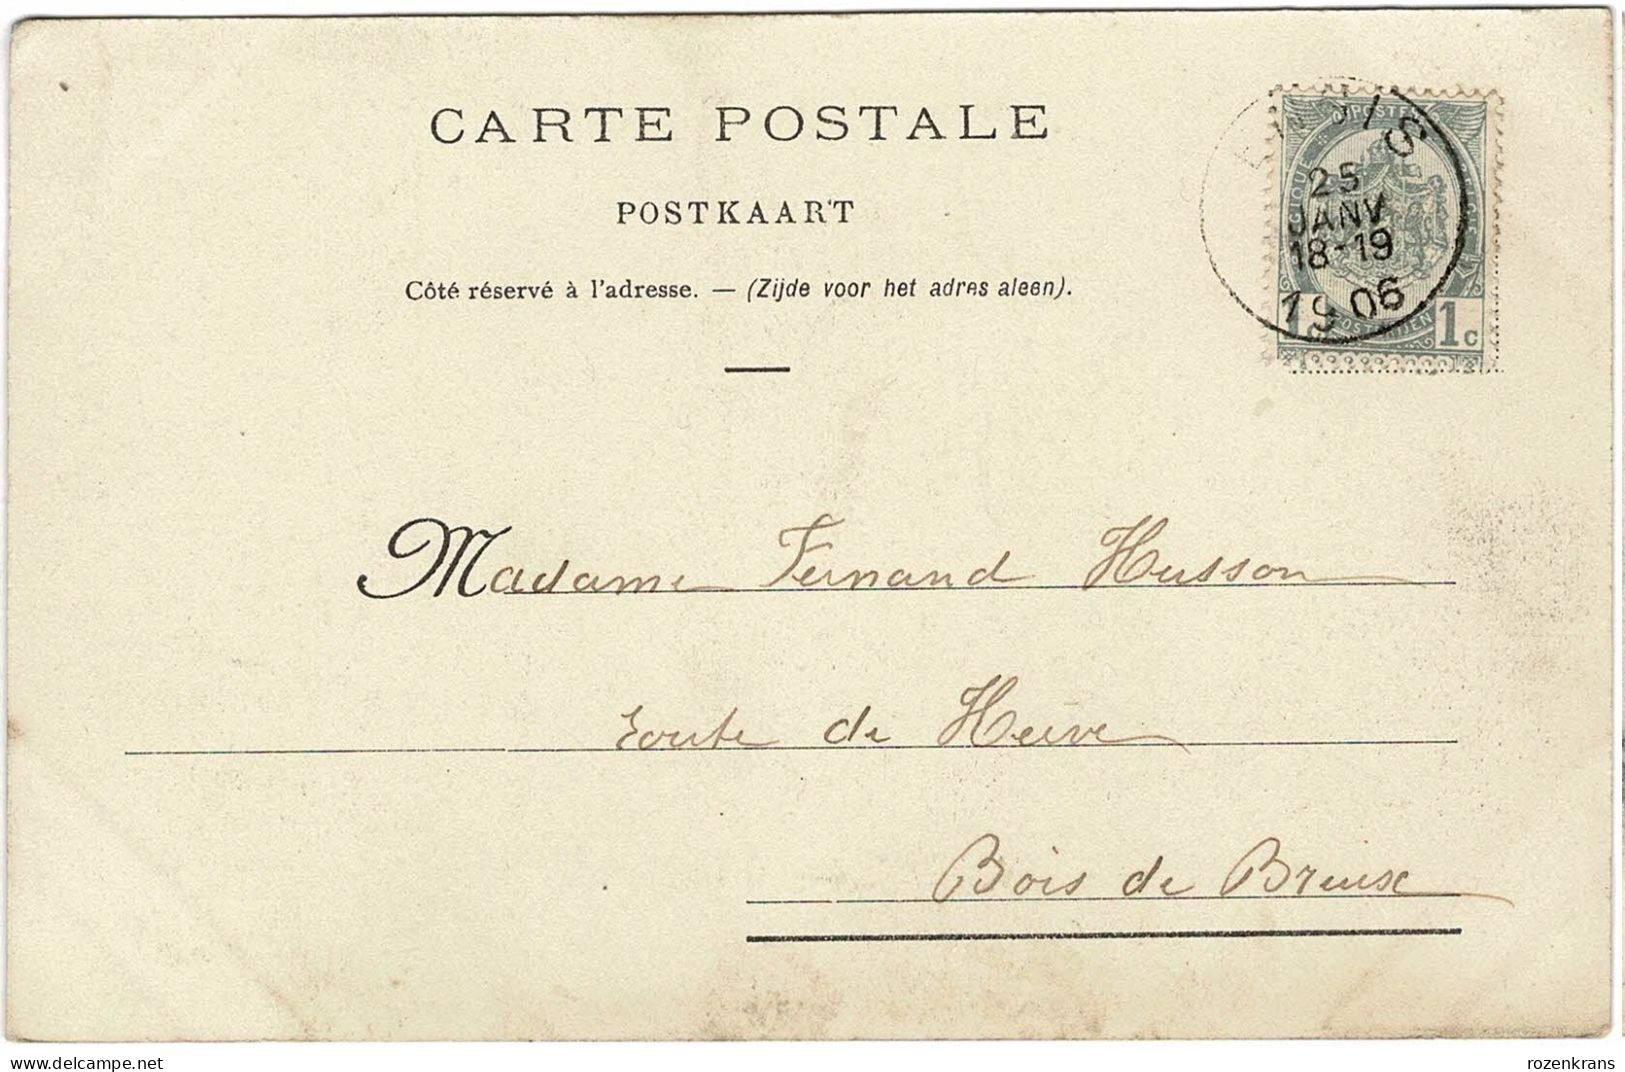 CARTE POSTALE
POSTKAART
Côté réservé à l'adresse. — (Zijde voor het adres aleen).
ENGIS
25
JANV
18-19
1906
1c 1c
Madame Fernand Husson
route de Herve
Bois de Breux
delcampe.net
rozenkrans